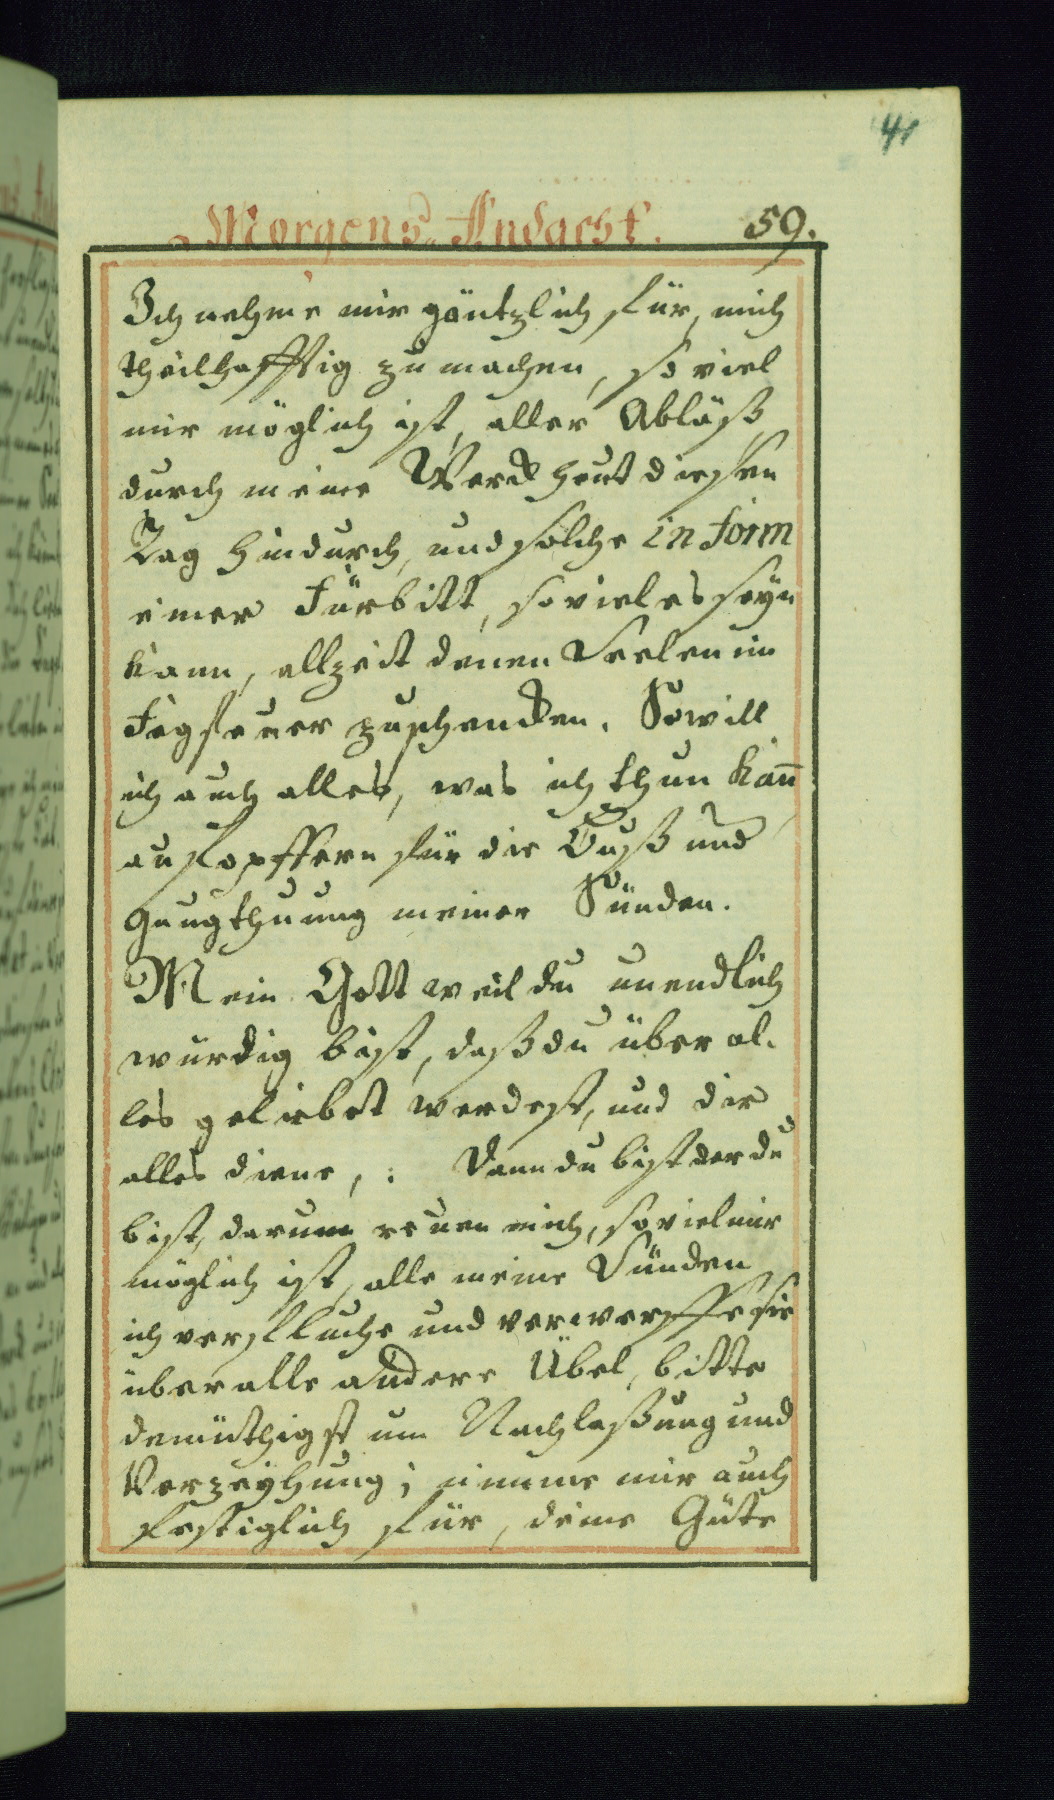 41
Morgens-Andacht. 59.
Ich nehme mir gäntzlich für, mich
theilhafftig zu machen, so viel
mir möglich ist, aller Abläß
durch meine Werck heut diesen
Tag hindurch, und solche in form
einer Fürbitt, so viel es seÿn
kann, allzeit denen Seelen im
Fegfeuer zuschencken. So will
ich auch alles, was ich thun kan̄
aufopffern für die Buß und
Gnugthuung meiner Sünden.
Mein Gott weil du unendlich
würdig bist, daß du über al-
les geliebet werdest, und dir
alles diene, : Dann du bist der du
bist, darum reuen mich, so viel mir
möglich ist, alle meine Sünden
ich verfluche und verwerffe sie
über alle andere Übel, bitte
demüthigst um Nachlaßung und
Verzeÿhung; nimme mir auch
festiglich für, deine Güte